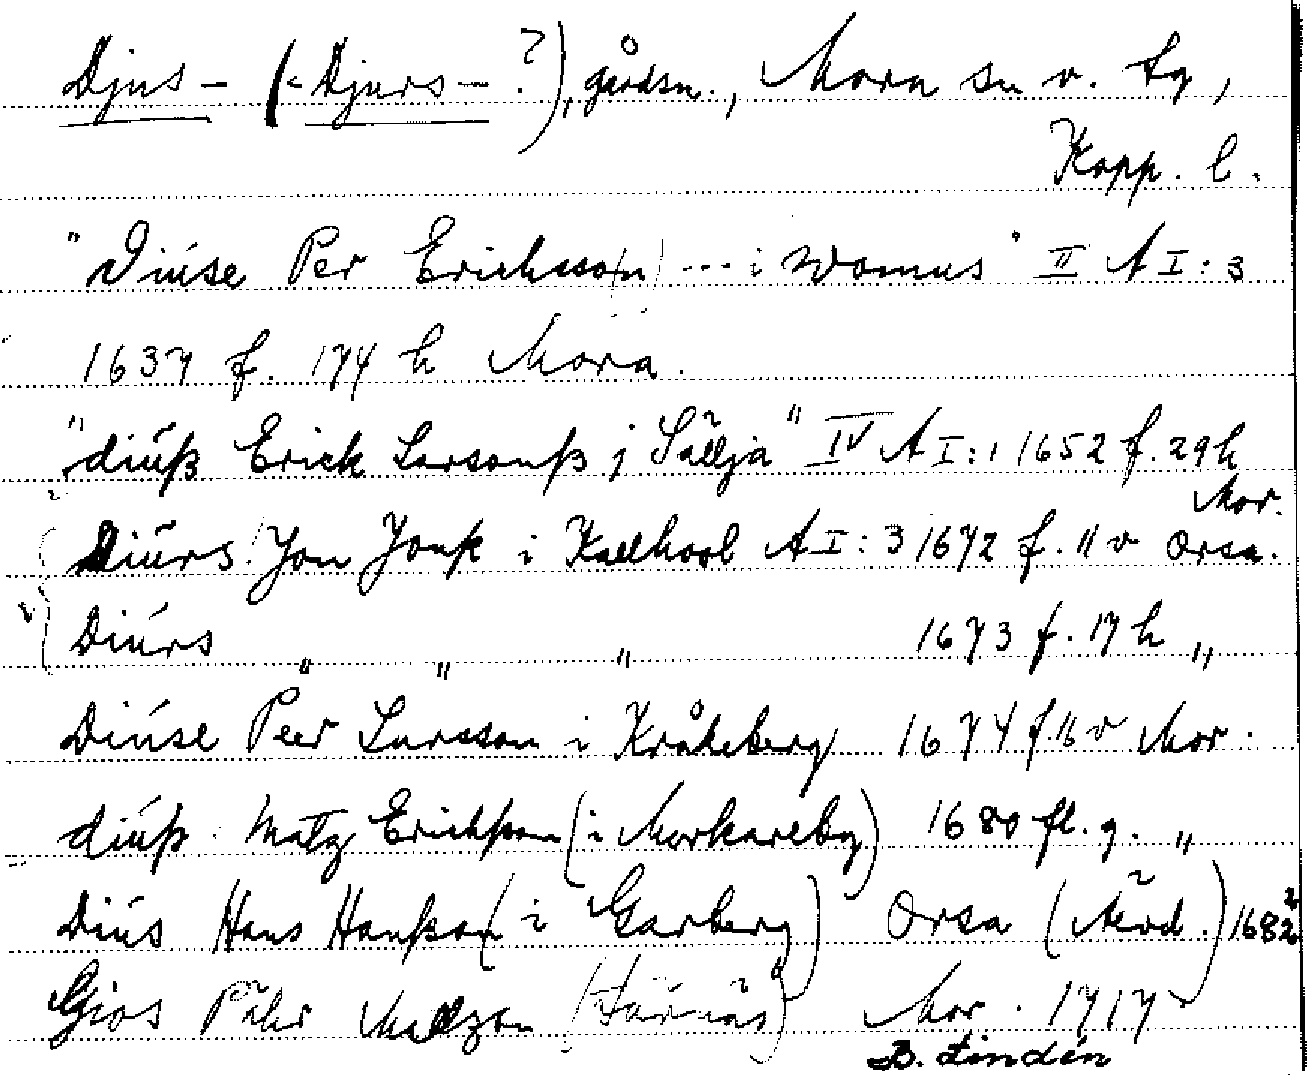 Djus – (< Djurs – ?), gårdsn., Mora sn o. tg,
Kopp. l.
"Diúse Per Erichsson) ... i Womus" II A I: 3
1637 f. 174 h Mora.
"diúß Erick Larsonß j Sällja" IV A I: 1 1652 f. 29 h
Mor.
Diúrs Jon Jonß i Kallhool A I: 3 1672 f. 11 v Orsa.
Diúrs " " " 1673 f. 17 h "
Diúse Peer Larsson i Kråkeberg 1674 f 11 v Mor.
diúß Matz Erichßon (i Morkareby) 1680 fl. g. "
Diús Hans Hanßon (i Garberg) Orsa (Älvd.) 1682
Gios Pähr Matzon (Färnäs) Mor. 1717
B. Lindén